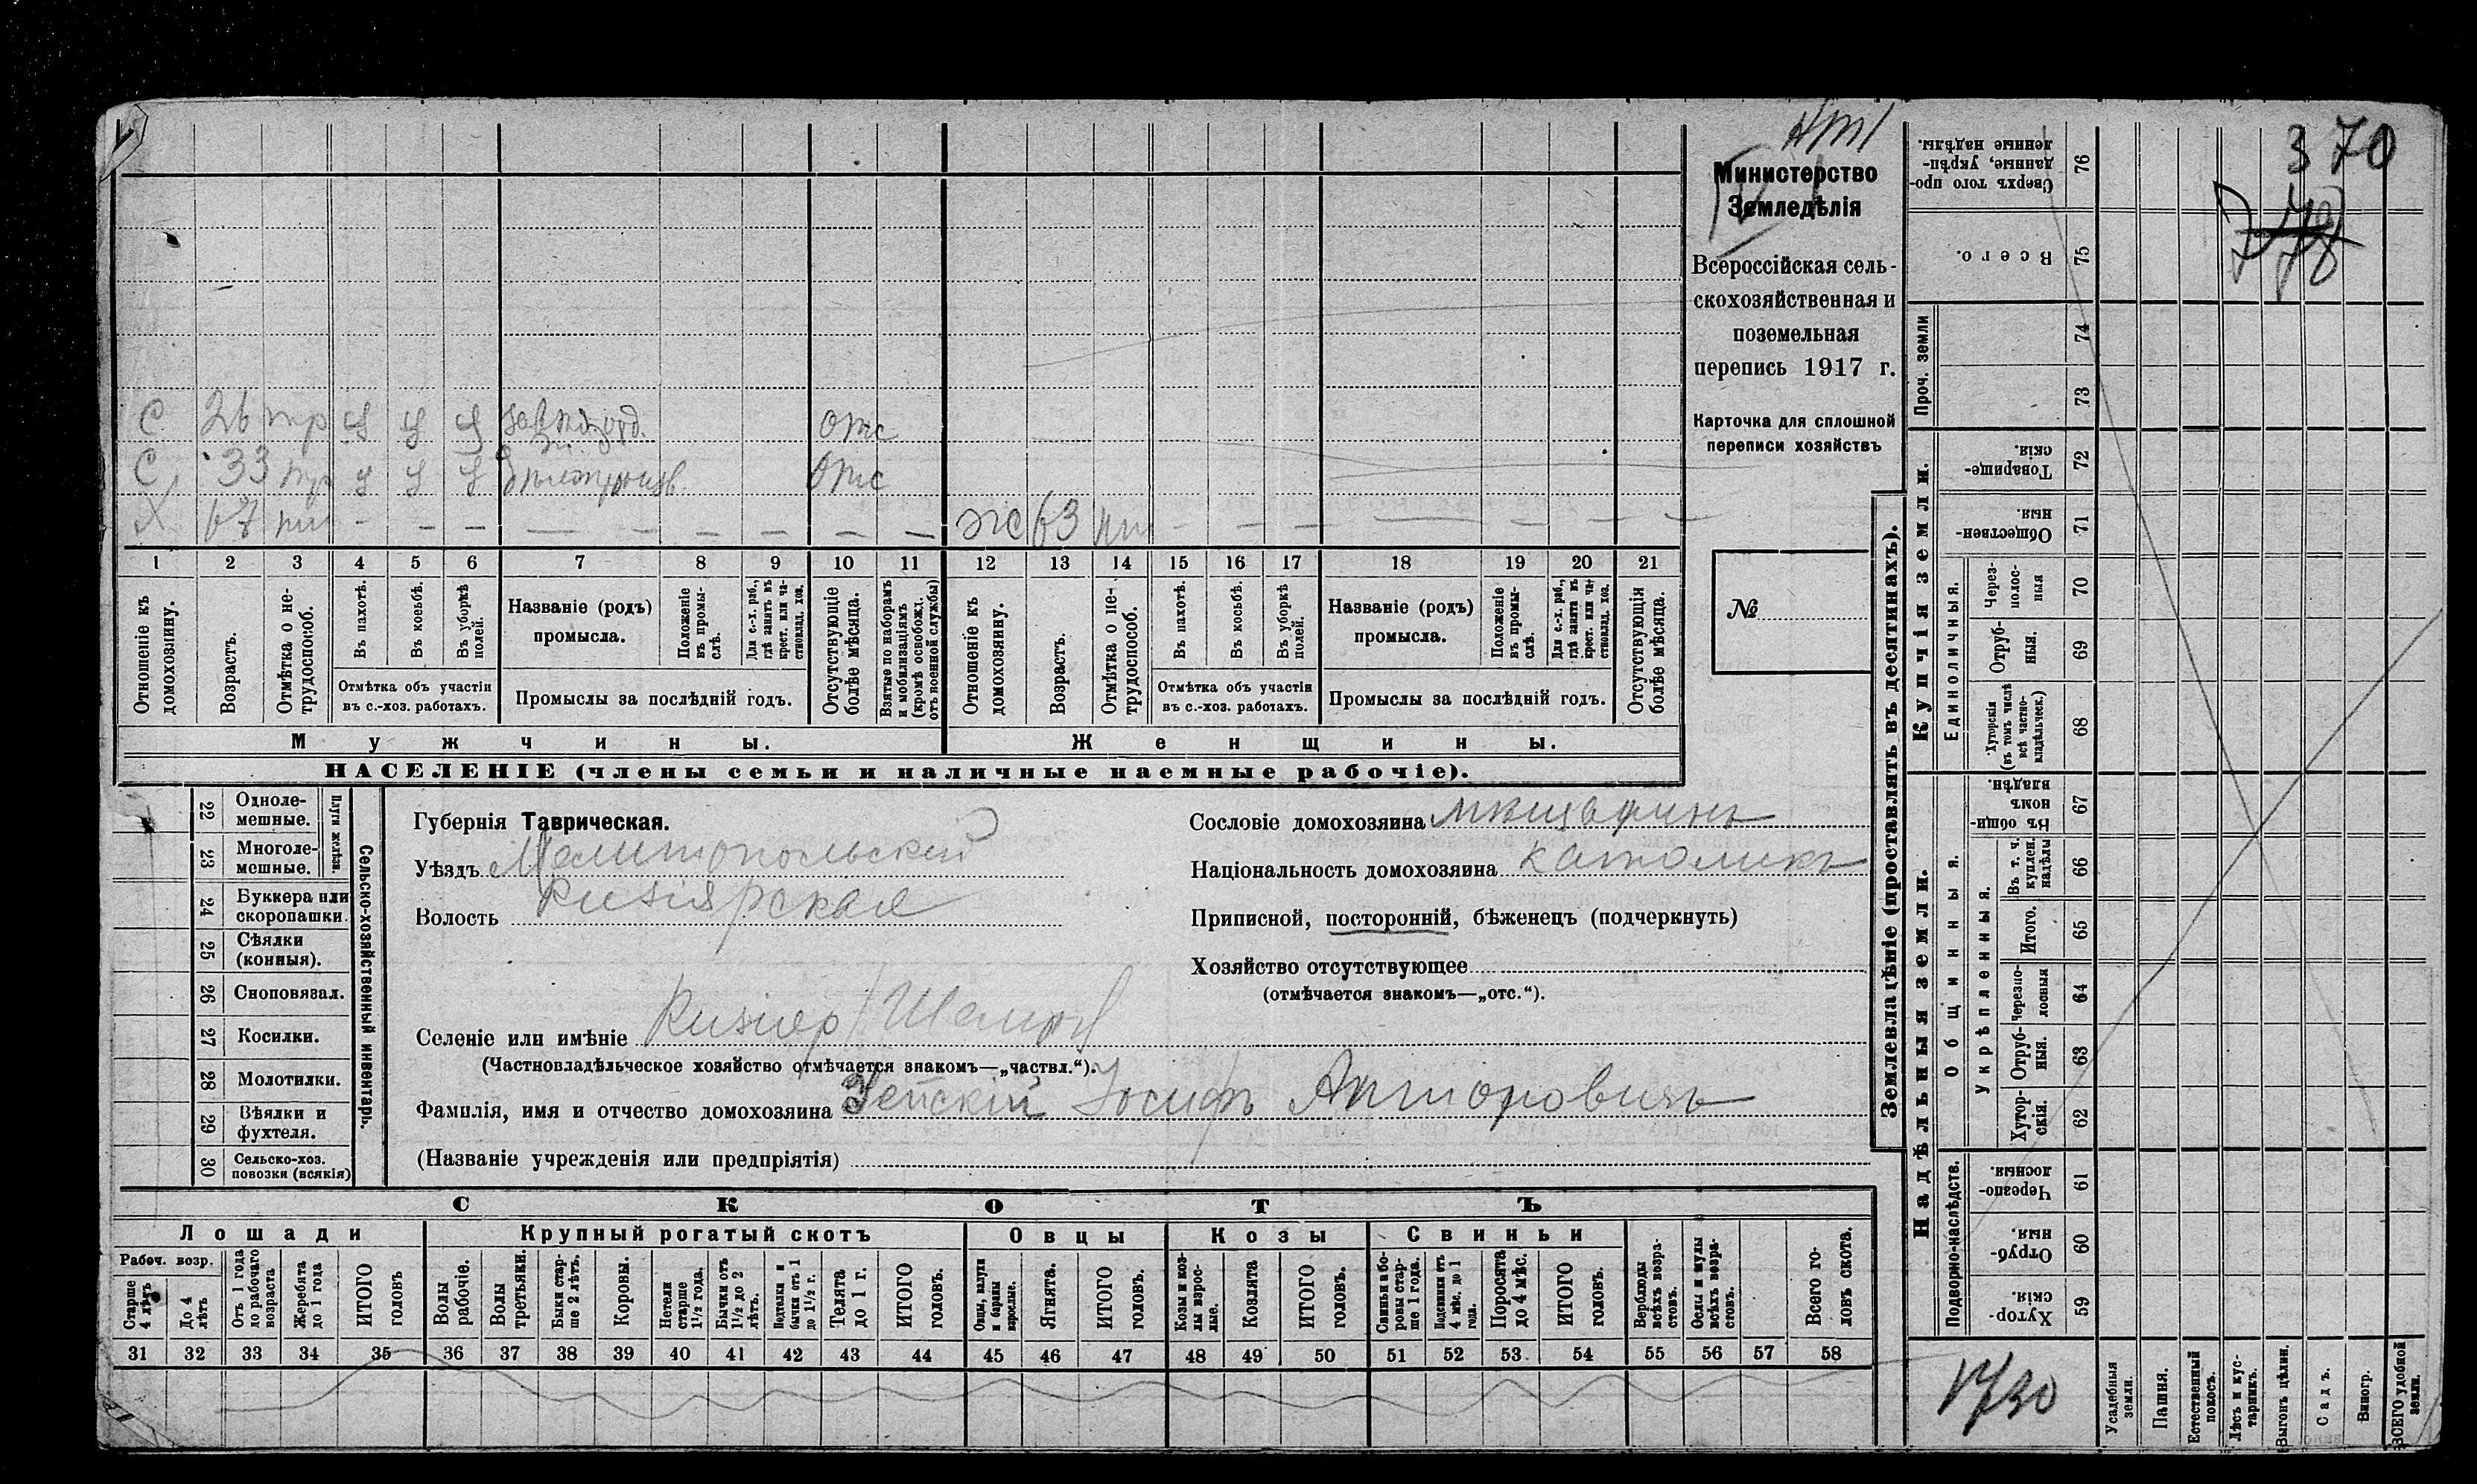 370
Министерство
Земледѣлія
Всероссійская сель-
скохозяйственная и
поземельная
перепись 1917 г.
Карточка для сплошной
переписи хозяйствъ
№
С 26 тр у у у отс
С 33 тр у у у отс
Х 67 пт - - - - - - - - эс 63 пт - - - - - - -
1 2 3 4 5 6 7 8 9 10 11 12 13 14 15 16 17 18 19 20 21
Отношеніе къ домохозяину.
Возрастъ.
Отмѣтка о не-трудоспособ.
Въ пахотѣ.
Въ косьбѣ.
Въ уборкѣ полей.
Отмѣтка объ участіи
въ с.-хоз. работахъ.
Названіе (родъ)
промысла.
Положеніе въ промы-слѣ.
Для с.-х. раб., гдѣ занятъ въ крест. или ча-стновлад. хоз.
Промыслы за послѣдній годъ.
Отсутствующіе болѣе мѣсяца.
Взятые по наборамъ и мобилизаціямъ (кромѣ освобожд. отъ военной службы)
Отношеніе къ домохозяину.
Возрастъ.
Отмѣтка о не-трудоспособ.
Въ пахотѣ.
Въ косьбѣ.
Въ уборкѣ полей.
Отмѣтка объ участіи
въ с.-хоз. работахъ.
Названіе (родъ)
промысла.
Положеніе въ промы-слѣ.
Для с.-х. раб., гдѣ занята въ крест. или ча-стновлад. хоз.
Промыслы за послѣдній годъ.
Отсутствующія болѣе мѣсяца.
Мужчины.
Женщины.
НАСЕЛЕНІЕ (члены семьи и наличные наемные рабочіе).
22 Одноле-мешные.
23 Многоле-мешные.
Плуги желѣзн.
24 Буккера или скоропашки.
25 Сѣялки (конныя).
26 Сноповязал.
27 Косилки.
28 Молотилки.
29 Вѣялки и фухтеля.
30 Сельско-хоз. повозки (всякія)
Сельско-хозяйственный инвентарь.
Губернія Таврическая.
Уѣздъ Мелитопольский
Волость Кизіярская
Селеніе или имѣніе Кизіяр
(Частновладѣльческое хозяйство отмѣчается знакомъ—„частвл.“).
Фамилія, имя и отчество домохозяина Иосифъ
(Названіе учрежденія или предпріятія)
Сословіе домохозяина мѣщанинъ
Національность домохозяина католикъ
Приписной, посторонній, бѣженецъ (подчеркнуть)
Хозяйство отсутствующее
(отмѣчается знакомъ—„отс.“).
СКОТЪ
Лошади
Рабоч. возр.
Старше 4 лѣтъ
До 4 лѣтъ
Отъ 1 года до рабочаго возраста
Жеребята до 1 года
ИТОГО головъ
Крупный рогатый скотъ
Волы рабочіе.
Волы третьяки.
Быки стар-ше 2 лѣтъ.
Коровы.
Нетели старше 1½ года.
Бычки отъ 1½ до 2 лѣтъ.
Подтелки и бычки отъ 1 до 1½ г.
Телята до 1 г.
ИТОГО головъ.
Овцы
Овцы, валухи и бараны взрослые.
Ягнята.
ИТОГО головъ.
Козы
Козы и коз-лы взрос-лые.
Козлята
ИТОГО головъ.
Свиньи
Свиньи и бо-ровы стар-ше 1 года.
Подсвинки отъ 4 мѣс. до 1 года.
Поросята до 4 мѣс.
ИТОГО головъ.
Верблюды всѣхъ возра-стовъ.
Ослы и мулы всѣхъ возра-стовъ.
Всего го-ловъ скота.
31 32 33 34 35 36 37 38 39 40 41 42 43 44 45 46 47 48 49 50 51 52 53 54 55 56 57 58
Землевладѣніе (проставлять въ десятинахъ).
Купчія земли.
Надѣльныя земли.
76 Сверхъ того про-данные, укрѣп-ленные надѣлы.
75 Всего.
Проч. земли
74
73
72 Товарище-скія.
71 Обществен-ныя.
Единоличныя.
70 Через-полос-ныя
69 Отруб-ныя.
68 Хуторскія (въ томъ числѣ всѣ частно-владѣльческ.)
Общинныя.
67 Въ общин-номъ владѣн.
Укрѣпленныя.
66 Въ т. ч. куплен. надѣлы
65 Итого.
64 Черезпо-лосныя
63 Отруб-ныя.
62 Хутор-скія.
Подворно-наслѣдств.
61 Черезпо-лосныя.
60 Отруб-ныя.
59 Хутор-скія.
Усадебныя земли.
Пашня.
Естественный покосъ.
Лѣсъ и кус-тарникъ.
Выгонъ цѣлин.
Садъ.
Виногр.
ВСЕГО удобной земли.